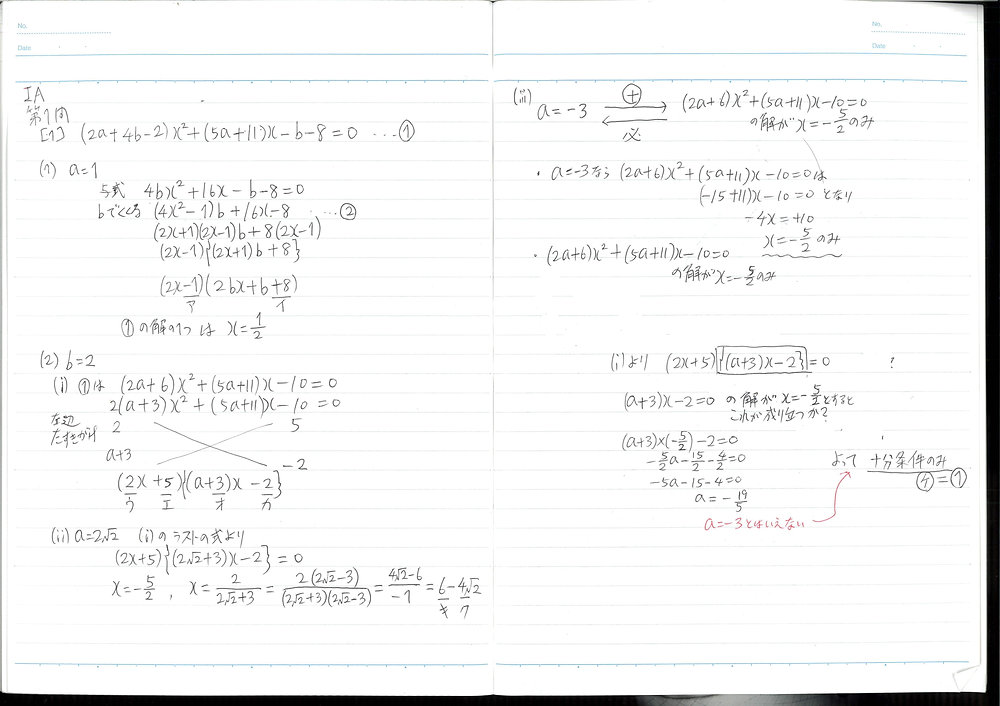 No.
Date
IA
第1問
[1] (2a+4b-2)x²+(5a+11)x-b-8=0 …①
(1) a=1
与式 4bx²+16x-b-8=0
bでくくる (4x²-1)b+16x-8 …②
(2x+1)(2x-1)b+8(2x-1)
(2x-1){(2x+1)b+8}
(2x-1)(2bx+b+8)
ア イ
①の解の1つは x=1/2
(2) b=2
(i) ①は (2a+6)x²+(5a+11)x-10=0
2(a+3)x²+(5a+11)x-10=0
左辺
たすきがけ
2 5
a+3 -2
(2x+5){(a+3)x-2}
ウ エ オ カ
(ii) a=2√2 (i)のラストの式より
(2x+5){(2√2+3)x-2}=0
x=-5/2 , x=2/(2√2+3)=2(2√2-3)/(2√2+3)(2√2-3)=(4√2-6)/-1=6-4√2
キ ク
No.
Date
(iii) a=-3 ⟶ ⊕ ⟵ 必 (2a+6)x²+(5a+11)x-10=0
の解がx=-5/2のみ
・a=-3なら (2a+6)x²+(5a+11)x-10=0は
(-15+11)x-10=0 となり
-4x=+10
x=-5/2のみ
・(2a+6)x²+(5a+11)x-10=0
の解がx=-5/2のみ
(i)より (2x+5){(a+3)x-2}=0 ?
(a+3)x-2=0 の解がx=-5/2とすると
これが成り立つか?
(a+3)×(-5/2)-2=0
-5/2a-15/2-4/2=0
-5a-15-4=0
a=-19/5
a=-3とはいえない
よって 十分条件のみ
④=①